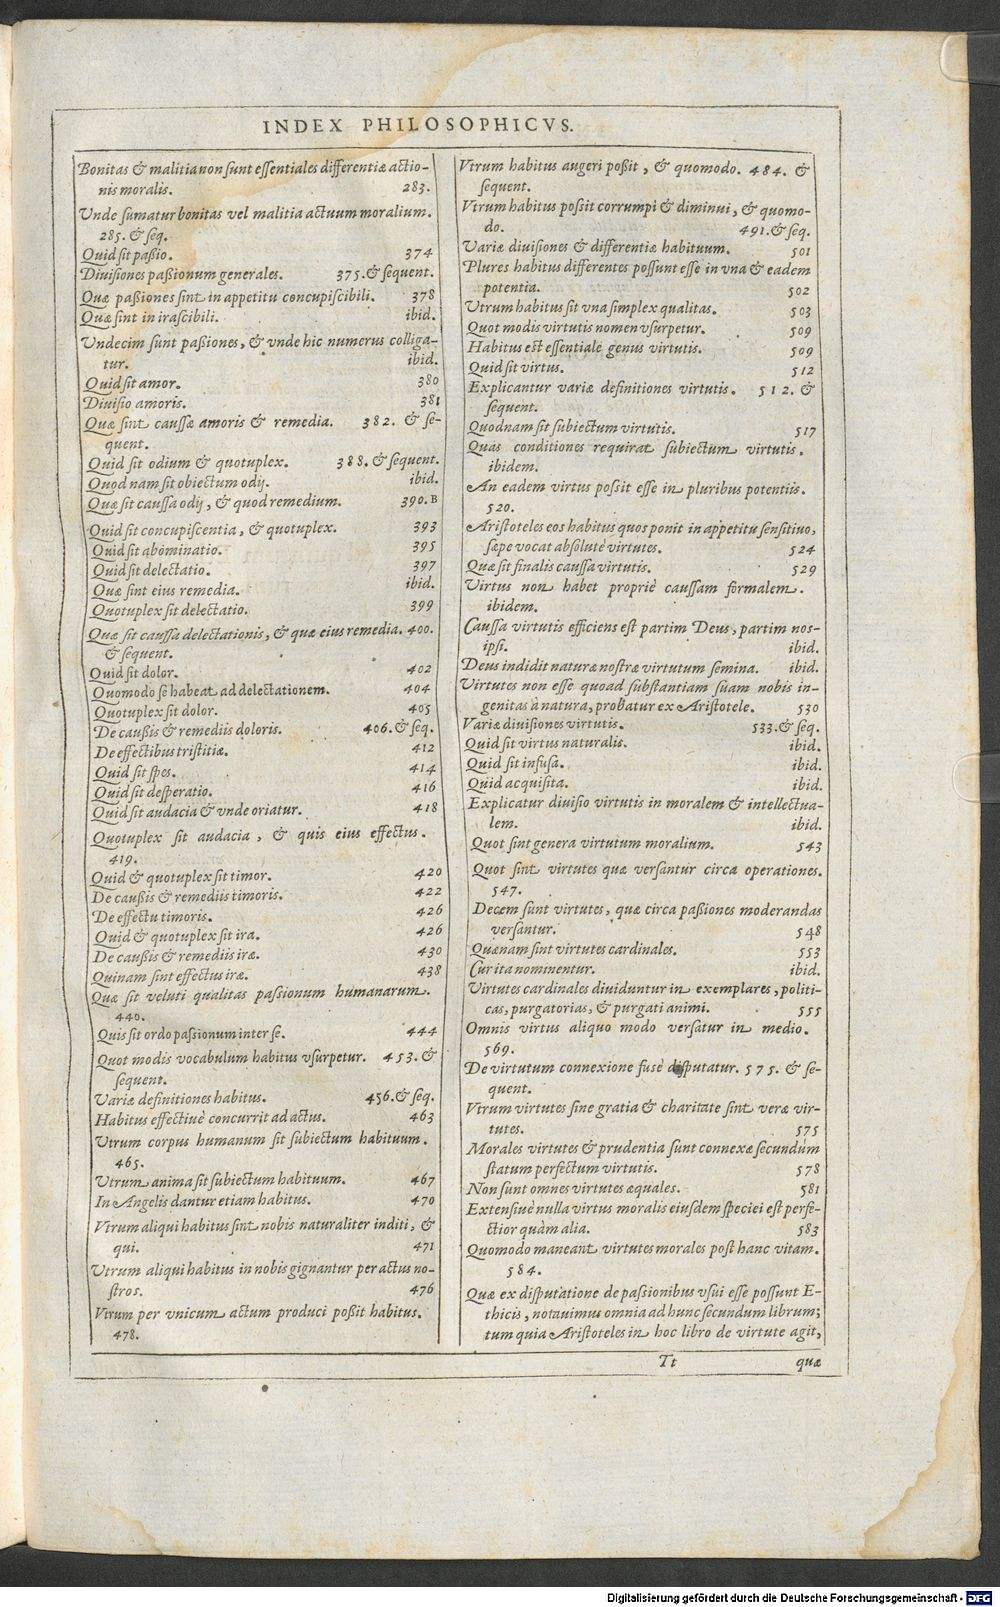 INDEX PHILOSOPHICVS.
Bonitas & malitia non sunt essentiales differentiæ actio-
nis moralis. 283.
Unde sumatur bonitas vel malitia actuum moralium.
285. & seq.
Quid sit paßio. 374
Divisiones paßionum generales. 375. & sequent.
Quæ paßiones sint in appetitu concupiscibili. 378
Quæ sint in irascibili. ibid.
Undecim sunt paßiones, & vnde hic numerus colliga-
tur. ibid.
Quid sit amor. 380
Divisio amoris. 381
Quæ sint caussæ amoris & remedia. 382. & se-
quent.
Quid sit odium & quotuplex. 388. & sequent.
Quod nam sit obiectum odij. ibid.
Quæ sit caussa odij, & quod remedium. 390. B
Quid sit concupiscentia, & quotuplex. 393
Quid sit abominatio. 395
Quid sit delectatio. 397
Quæ sint eius remedia. ibid.
Quotuplex sit delectatio. 399
Quæ sit caussa delectationis, & quæ eius remedia. 400.
& sequent.
Quid sit dolor. 402
Quomodo se habeat ad delectationem. 404
Quotuplex sit dolor. 405
De caußis & remediis doloris. 406. & seq.
De effectibus tristitiæ. 412
Quid sit spes. 414
Quid sit desperatio. 416
Quid sit audacia & vnde oriatur. 418
Quotuplex sit audacia, & quis eius effectus.
419.
Quid & quotuplex sit timor. 420
De caußis & remediis timoris. 422
De effectu timoris. 426
Quid & quotuplex sit ira. 426
De caußis & remediis iræ. 430
Quinam sint effectus iræ. 438
Quæ sit veluti qualitas passionum humanarum.
440.
Quis sit ordo passionum inter se. 444
Quot modis vocabulum habitus vsurpetur. 453. &
sequent.
Variæ definitiones habitus. 456. & seq.
Habitus effectiuè concurrit ad actus. 463
Utrum corpus humanum sit subiectum habituum.
465.
Utrum anima sit subiectum habituum. 467
In Angelis dantur etiam habitus. 470
Vtrum aliqui habitus sint nobis naturaliter inditi, &
qui. 471
Utrum aliqui habitus in nobis gignantur per actus no-
stros. 476
Vtrum per vnicum actum produci poßit habitus.
478.
Vtrum habitus augeri poßit, & quomodo. 484. &
sequent.
Vtrum habitus possit corrumpi & diminui, & quomo-
do. 491. & seq.
Variæ divisiones & differentiæ habituum. 501
Plures habitus differentes possunt esse in vna & eadem
potentia. 502
Utrum habitus sit vna simplex qualitas. 503
Quot modis virtutis nomen vsurpetur. 509
Habitus est essentiale genus virtutis. 509
Quid sit virtus. 512
Explicantur variæ definitiones virtutis. 512. &
sequent.
Quodnam sit subiectum virtutis. 517
Quas conditiones requirat subiectum virtutis.
ibidem.
An eadem virtus possit esse in pluribus potentiis.
520.
Aristoteles eos habitus quos ponit in appetitu sensitiuo,
sæpe vocat absolutè virtutes. 524
Quæ sit finalis caussa virtutis. 529
Virtus non habet propriè caussam formalem.
ibidem.
Caussa virtutis efficiens est partim Deus, partim nos-
ipsi. ibid.
Deus indidit naturæ nostræ virtutum semina. ibid.
Virtutes non esse quoad substantiam suam nobis in-
genitas à natura, probatur ex Aristotele. 530
Variæ divisiones virtutis. 533. & seq.
Quid sit virtus naturalis. ibid.
Quid sit infusa. ibid.
Quid acquisita. ibid.
Explicatur divisio virtutis in moralem & intellectua-
lem. ibid.
Quot sint genera virtutum moralium. 543
Quot sint virtutes quæ versantur circa operationes.
547.
Decem sunt virtutes, quæ circa paßiones moderandas
versantur. 548
Quænam sint virtutes cardinales. 553
Cur ita nominentur. ibid.
Virtutes cardinales dividuntur in exemplares, politi-
cas, purgatorias, & purgati animi. 555
Omnis virtus aliquo modo versatur in medio.
569.
De virtutum connexione fusè disputatur. 575. & se-
quent.
Vtrum virtutes sine gratia & charitate sint veræ vir-
tutes. 575
Morales virtutes & prudentia sunt connexæ secundùm
statum perfectum virtutis. 578
Non sunt omnes virtutes æquales. 581
Extensiuè nulla virtus moralis eiusdem speciei est perfe-
ctior quàm alia. 583
Quomodo maneant virtutes morales post hanc vitam.
584.
Quæ ex disputatione de passionibus vsui esse possunt E-
thicis, notauimus omnia ad hunc secundum librum;
tum quia Aristoteles in hoc libro de virtute agit,
Tt quæ
Digitalisierung gefördert durch die Deutsche Forschungsgemeinschaft - DFG